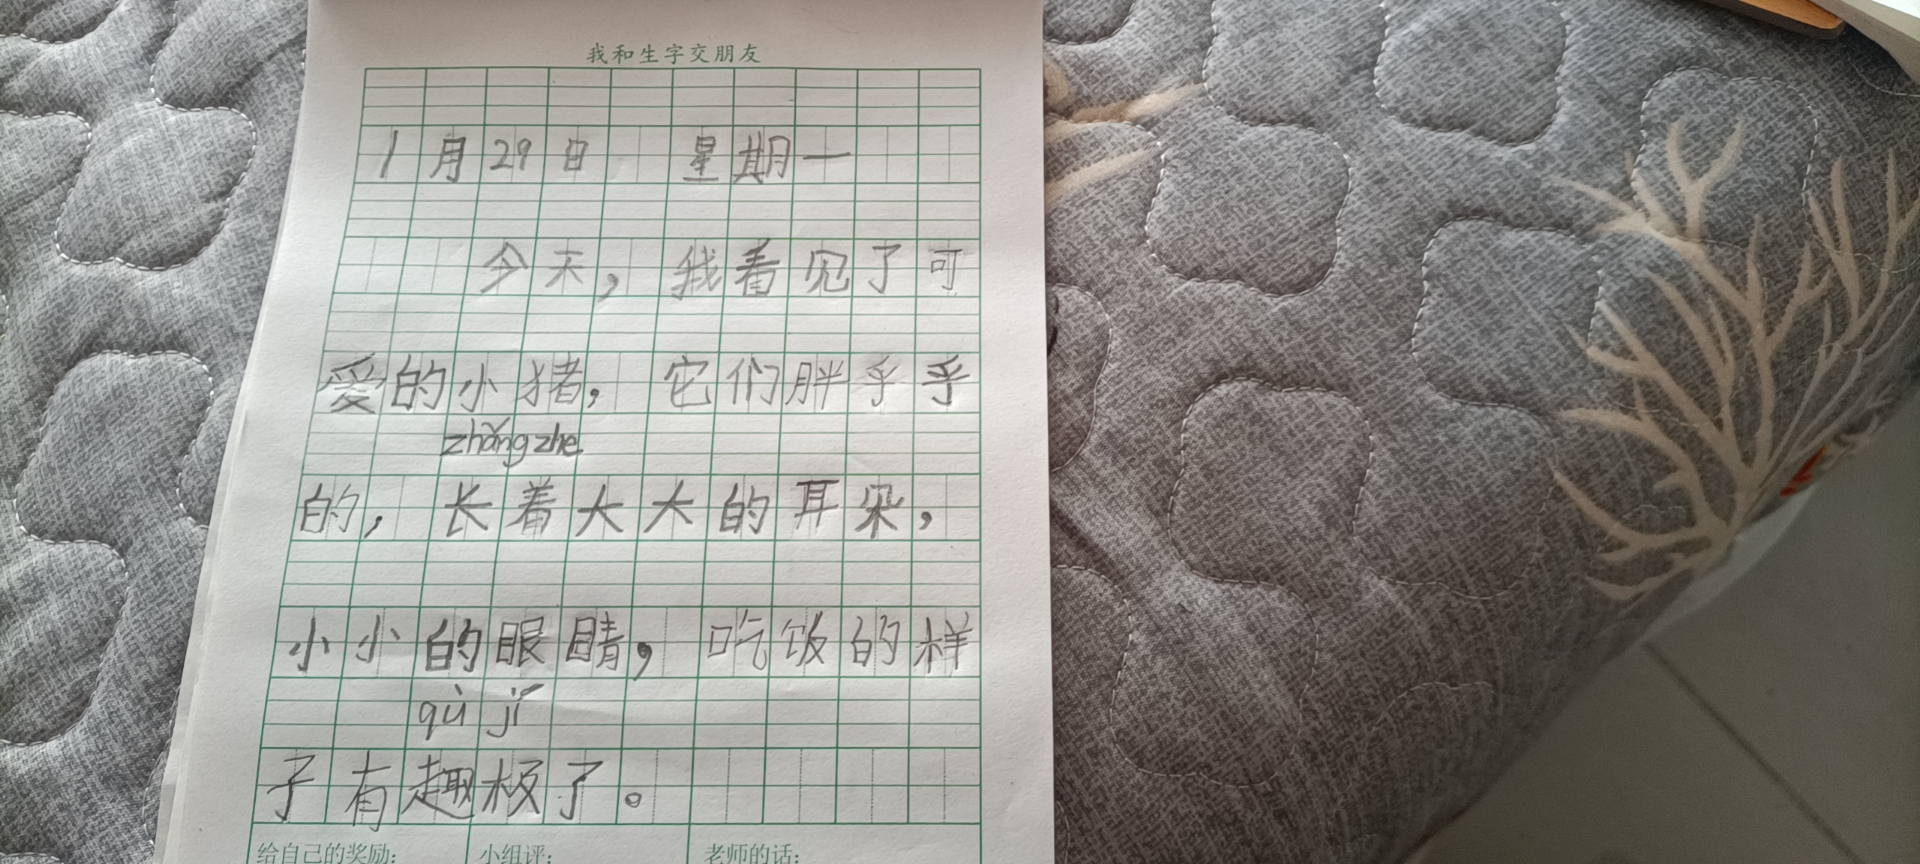 我和生字交朋友
1月29日 星期一
今天，我看见了可
爱的小猪，它们胖乎乎
zhǎng zhe
的，长着大大的耳朵，
小小的眼睛，吃饭的样
qù jí
子有趣极了。
给自己的奖励： 小组评： 老师的话：